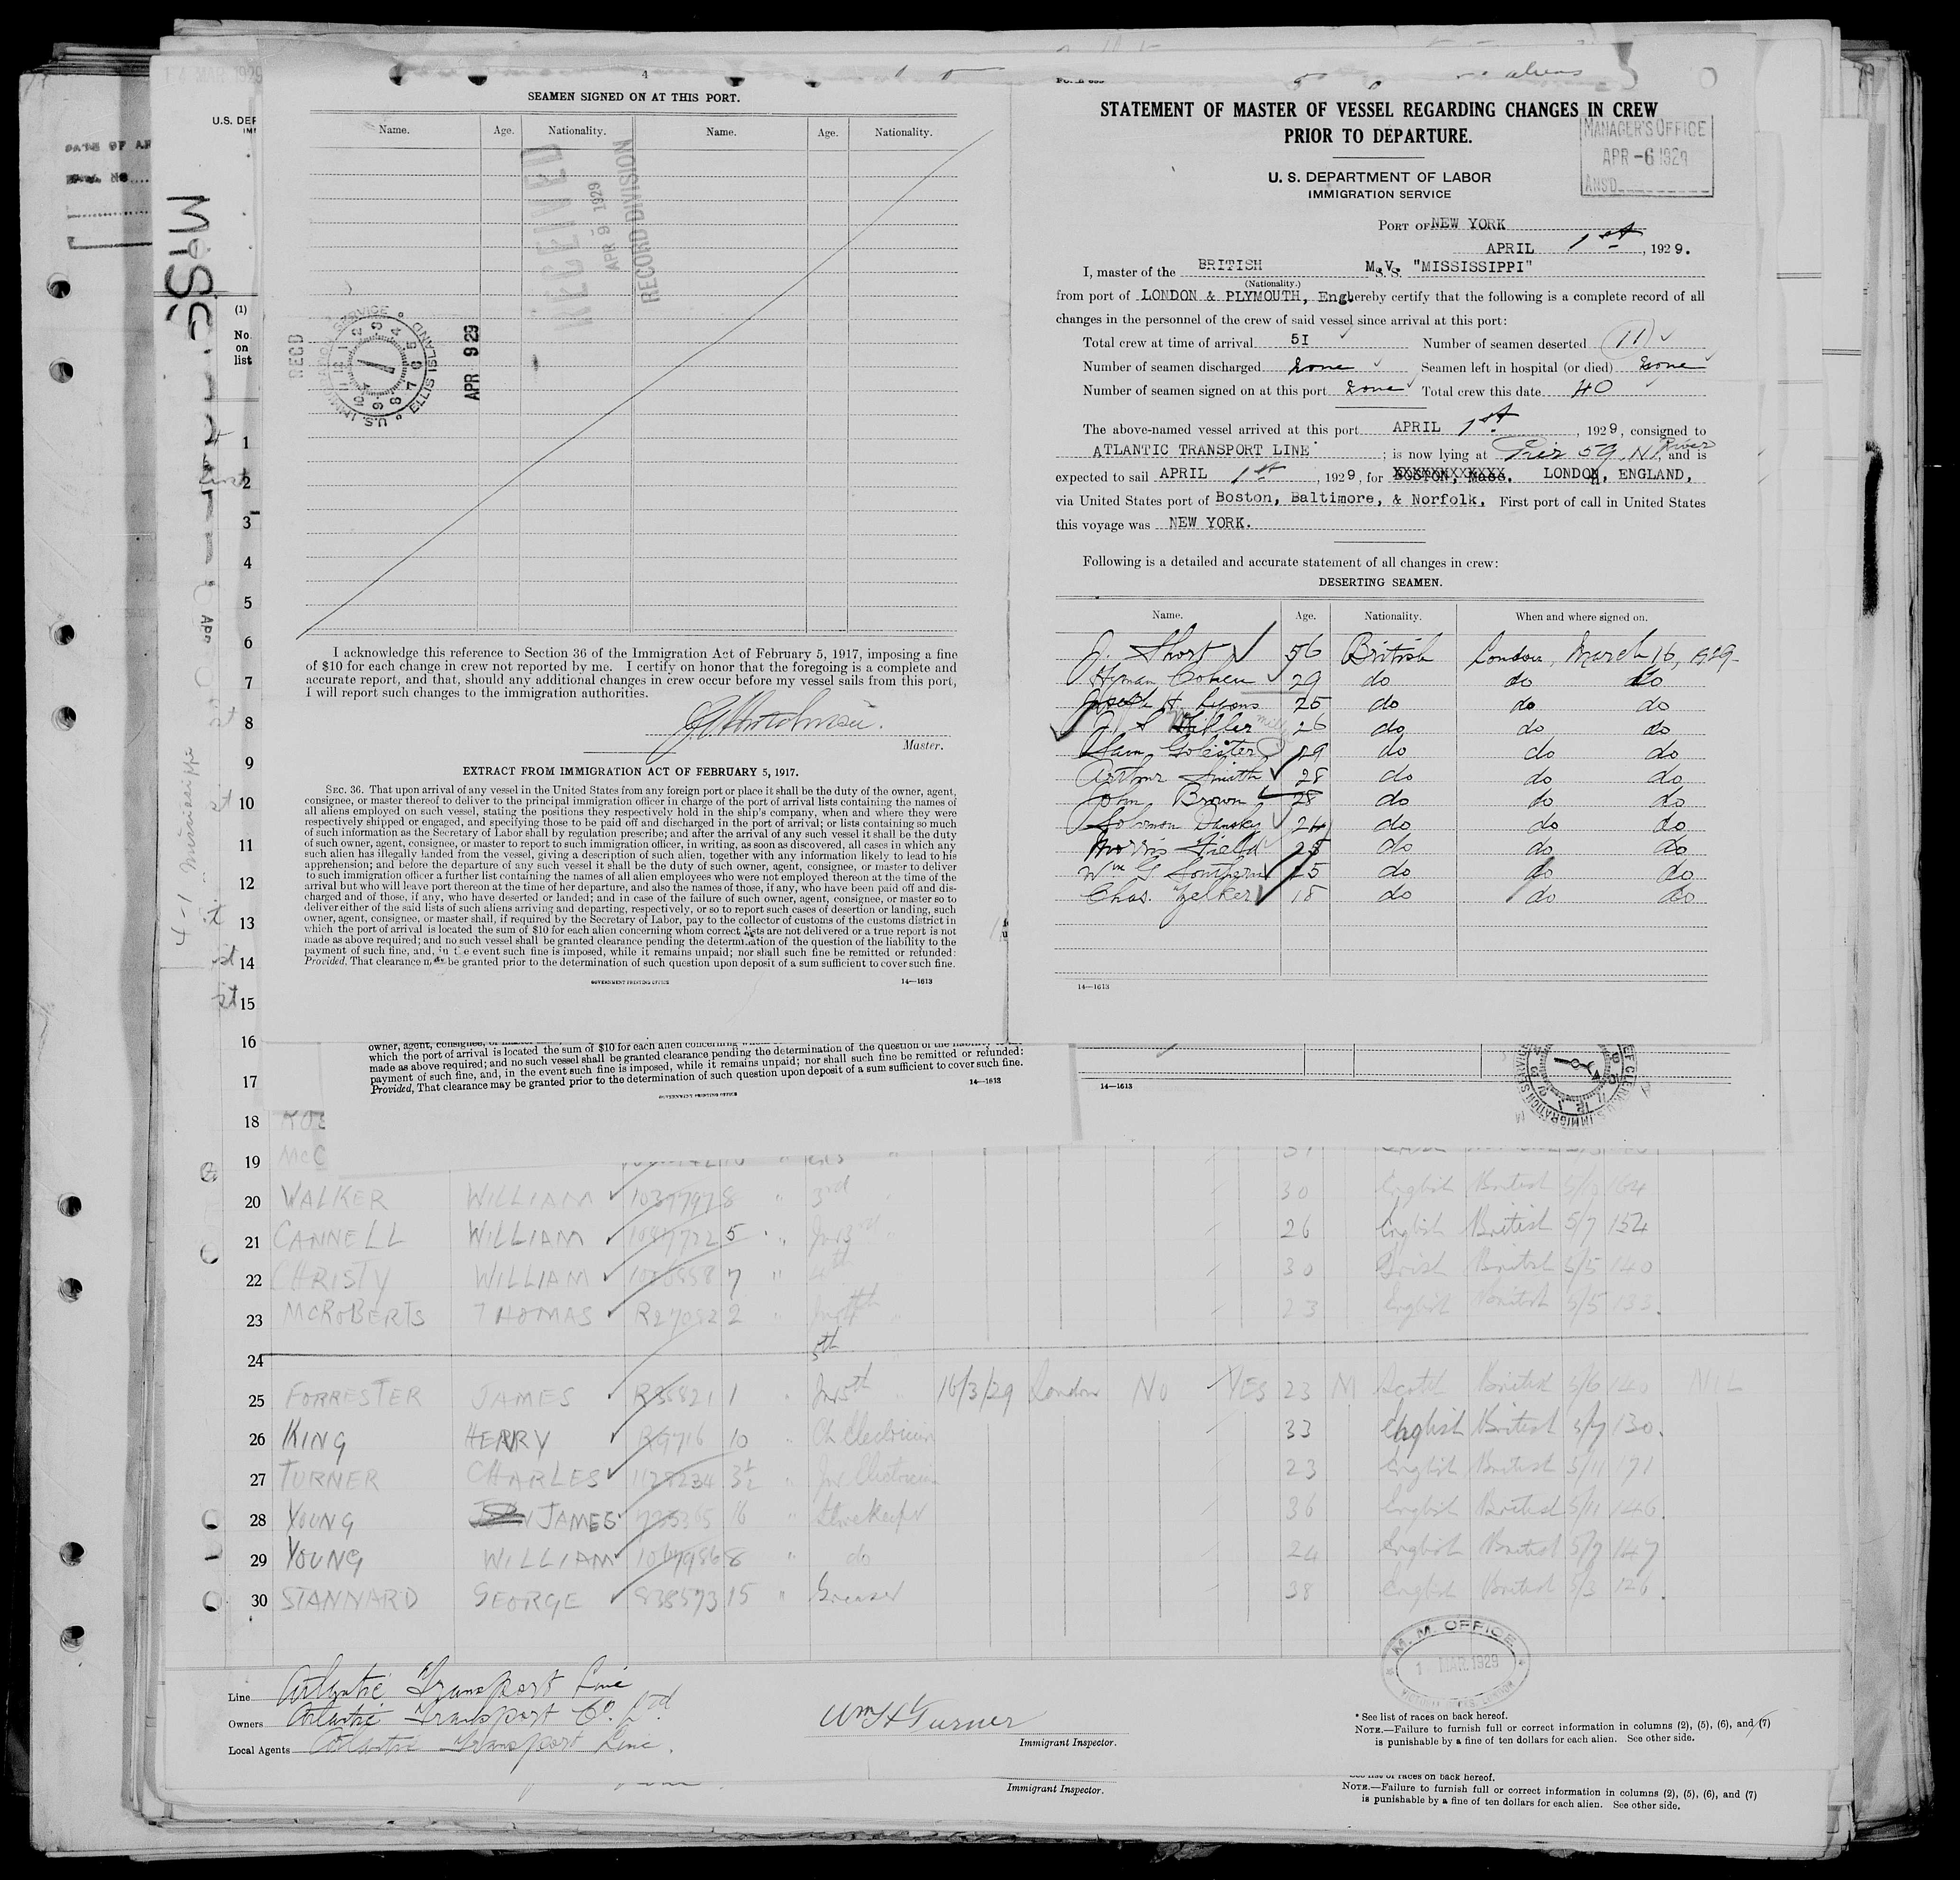 4
SEAMEN SIGNED ON AT THIS PORT.
Name. Age. Nationality. Name. Age. Nationality.
RECEIVED
APR 9 1929
RECORD DIVISION
RECD
U.S. IMMIGRATION SERVICE
ELLIS ISLAND
APR 9 29
I acknowledge this reference to Section 36 of the Immigration Act of February 5, 1917, imposing a fine
of $10 for each change in crew not reported by me. I certify on honor that the foregoing is a complete and
accurate report, and that, should any additional changes in crew occur before my vessel sails from this port,
I will report such changes to the immigration authorities.
Master.
EXTRACT FROM IMMIGRATION ACT OF FEBRUARY 5, 1917.
SEC. 36. That upon arrival of any vessel in the United States from any foreign port or place it shall be the duty of the owner, agent,
consignee, or master thereof to deliver to the principal immigration officer in charge of the port of arrival lists containing the names of
all aliens employed on such vessel, stating the positions they respectively hold in the ship's company, when and where they were
respectively shipped or engaged, and specifying those to be paid off and discharged in the port of arrival; or lists containing so much
of such information as the Secretary of Labor shall by regulation prescribe; and after the arrival of any such vessel it shall be the duty
of such owner, agent, consignee, or master to report to such immigration officer, in writing, as soon as discovered, all cases in which any
such alien has illegally landed from the vessel, giving a description of such alien, together with any information likely to lead to his
apprehension; and before the departure of any such vessel it shall be the duty of such owner, agent, consignee, or master to deliver
to such immigration officer a further list containing the names of all alien employees who were not employed thereon at the time of the
arrival but who will leave port thereon at the time of her departure, and also the names of those, if any, who have been paid off and dis-
charged and of those, if any, who have deserted or landed; and in case of the failure of such owner, agent, consignee, or master so to
deliver either of the said lists of such aliens arriving and departing, respectively, or so to report such cases of desertion or landing, such
owner, agent, consignee, or master shall, if required by the Secretary of Labor, pay to the collector of customs of the customs district in
which the port of arrival is located the sum of $10 for each alien concerning whom correct lists are not delivered or a true report is not
made as above required; and no such vessel shall be granted clearance pending the determination of the question of the liability to the
payment of such fine, and, in the event such fine is imposed, while it remains unpaid; nor shall such fine be remitted or refunded:
Provided, That clearance may be granted prior to the determination of such question upon deposit of a sum sufficient to cover such fine.
GOVERNMENT PRINTING OFFICE 14—1613
aliens
STATEMENT OF MASTER OF VESSEL REGARDING CHANGES IN CREW
PRIOR TO DEPARTURE.
MANAGER'S OFFICE
APR -6 1929
ANSD
U. S. DEPARTMENT OF LABOR
IMMIGRATION SERVICE
PORT OF NEW YORK
APRIL 1st, 1929.
I, master of the BRITISH M.V. "MISSISSIPPI"
(Nationality.)
from port of LONDON & PLYMOUTH, Eng hereby certify that the following is a complete record of all
changes in the personnel of the crew of said vessel since arrival at this port:
Total crew at time of arrival 51 Number of seamen deserted 11
Number of seamen discharged none Seamen left in hospital (or died) none
Number of seamen signed on at this port none Total crew this date 40
The above-named vessel arrived at this port APRIL 1st, 1929, consigned to
ATLANTIC TRANSPORT LINE; is now lying at Pier 59, N River, and is
expected to sail APRIL 1st, 1929, for BOSTON, Mass. LONDON, ENGLAND,
via United States port of Boston, Baltimore, & Norfolk, First port of call in United States
this voyage was NEW YORK.
Following is a detailed and accurate statement of all changes in crew:
DESERTING SEAMEN.
Name. Age. Nationality. When and where signed on.
J. Short 56 British London, March 16, 1929
Hyman Cohen 29 do do do
Joseph H. Lyons 25 do do do
J. S. Miller 26 do do do
Sam Golester 29 do do do
Arthur Smith 28 do do do
John Brown 28 do do do
Solomon Dansky 24 do do do
Morris Field 25 do do do
Wm G Southern 25 do do do
Chas. Zelker 18 do do do
14—1613
(1)
No.
on
list
1
2
3
4
5
6
7
8
9
10
11
12
13
14
15
16
17
which the port of arrival is located the sum of $10 for each alien concerning whom correct lists are not delivered or a true report is not
made as above required; and no such vessel shall be granted clearance pending the determination of the question of the liability to the
payment of such fine, and, in the event such fine is imposed, while it remains unpaid; nor shall such fine be remitted or refunded:
Provided, That clearance may be granted prior to the determination of such question upon deposit of a sum sufficient to cover such fine.
GOVERNMENT PRINTING OFFICE 14—1613
14—1613
18
19 McC
20 WALKER WILLIAM 8 " 3rd 30 English British 164
21 CANNELL WILLIAM 5 " 26 English British 5/7 154
22 CHRISTY WILLIAM 7 " 4th 30 Irish British 5/5 140
23 McROBERTS THOMAS 2 " 23 English British 5/5 133
24 5th
25 FORRESTER JAMES R35821 1 " Jnr 5th 16/3/29 London NO YES 23 M Scotch British 5/6 140 NIL
26 KING HENRY R9716 10 " Ch Electrician 33 English British 5/7 130
27 TURNER CHARLES 1128234 3½ " Jnr Electrician 23 English British 5/11 171
28 YOUNG JAMES 16 " Storekeeper 36 English British 5/11 146
29 YOUNG WILLIAM 8 " do 24 English British 5/7 147
30 STANNARD GEORGE 838573 15 " Greaser 38 English British 5/3 126
M. M. OFFICE
MAR 1929
Line Atlantic Transport Line
Owners Atlantic Transport Co. Ltd
Local Agents Atlantic Transport Line.
Wm H Turner
Immigrant Inspector.
* See list of races on back hereof.
NOTE.—Failure to furnish full or correct information in columns (2), (5), (6), and (7)
is punishable by a fine of ten dollars for each alien. See other side.
Immigrant Inspector.
See list of races on back hereof.
NOTE.—Failure to furnish full or correct information in columns (2), (5), (6), and (7)
is punishable by a fine of ten dollars for each alien. See other side.